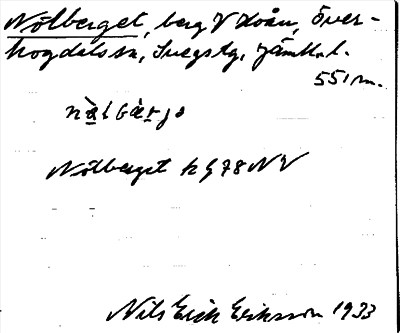 Nölberget, berg V Hoån, Över-
hogdals sn, Svegs tg, Jämtl. l.
551 m.
Nölberget k G78 NV
Nils Erik Eriksson 1933